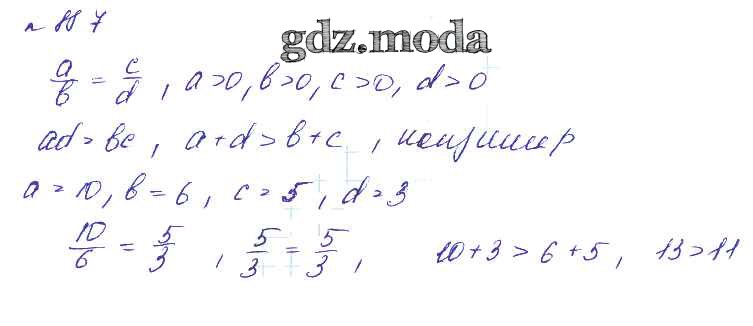 № 887
gdz.moda
a/b = c/d , a>0, b>0, c>0, d>0
ad = bc , a+d > b+c , например
a = 10, b = 6 , c = 5 , d = 3
10/6 = 5/3 , 5/3 = 5/3 , 10+3 > 6+5 , 13>11